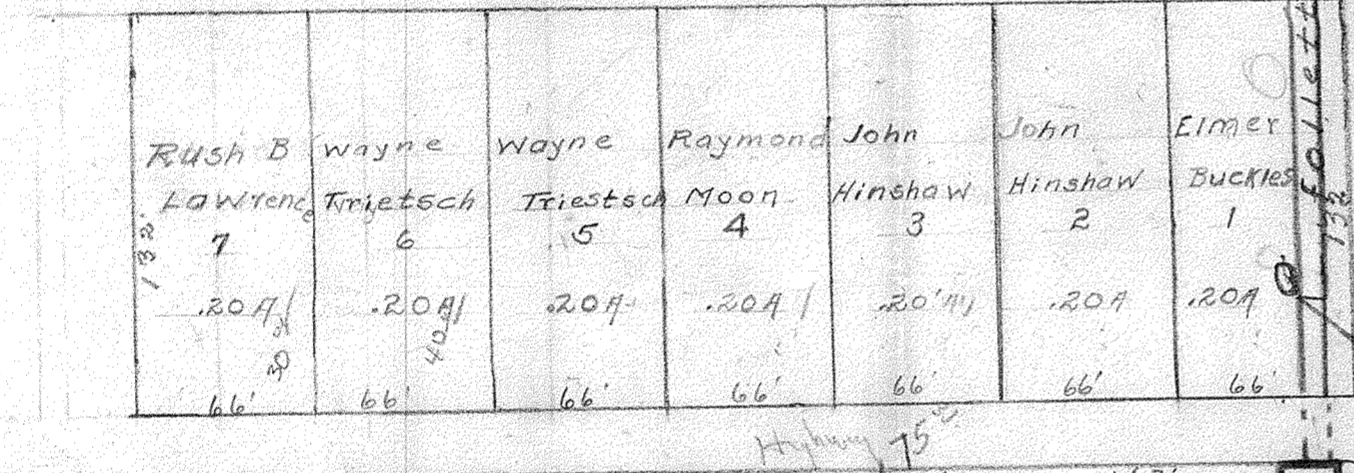 Rush B
Lawrence
7
.20A
66'
132'
Wayne
Trietsch
6
.20A
40
66'
Wayne
Triestsch
5
.20A
66'
Raymond
Moon
4
.20A
66'
John
Hinshaw
3
.20'A
66'
John
Hinshaw
2
.20A
66'
Elmer
Buckles
1
.20A
66'
follett
132
Hyhway 75